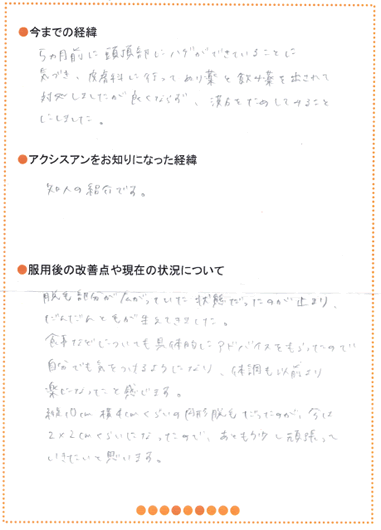 ●今までの経緯
5ヵ月前に頭頂部にハゲができていることに
気づき、皮膚科に行ってぬり薬と飲み薬を出されて
対処しましたが良くならず、漢方をためしてみること
にしました。
●アクシスアンをお知りになった経緯
知人の紹介です。
●服用後の改善点や現在の状況について
脱毛部分が広がっていた状態だったのが止まり、
だんだんと毛が生えてきました。
食事などについても具体的にアドバイスをもらったので
自分でも気をつけるようになり、体調も以前より
楽になったと感じます。
縦10cm 横4cmくらいの円形脱毛だったのが、今は
2×2cmくらいになったので、あともう少し頑張って
いきたいと思います。